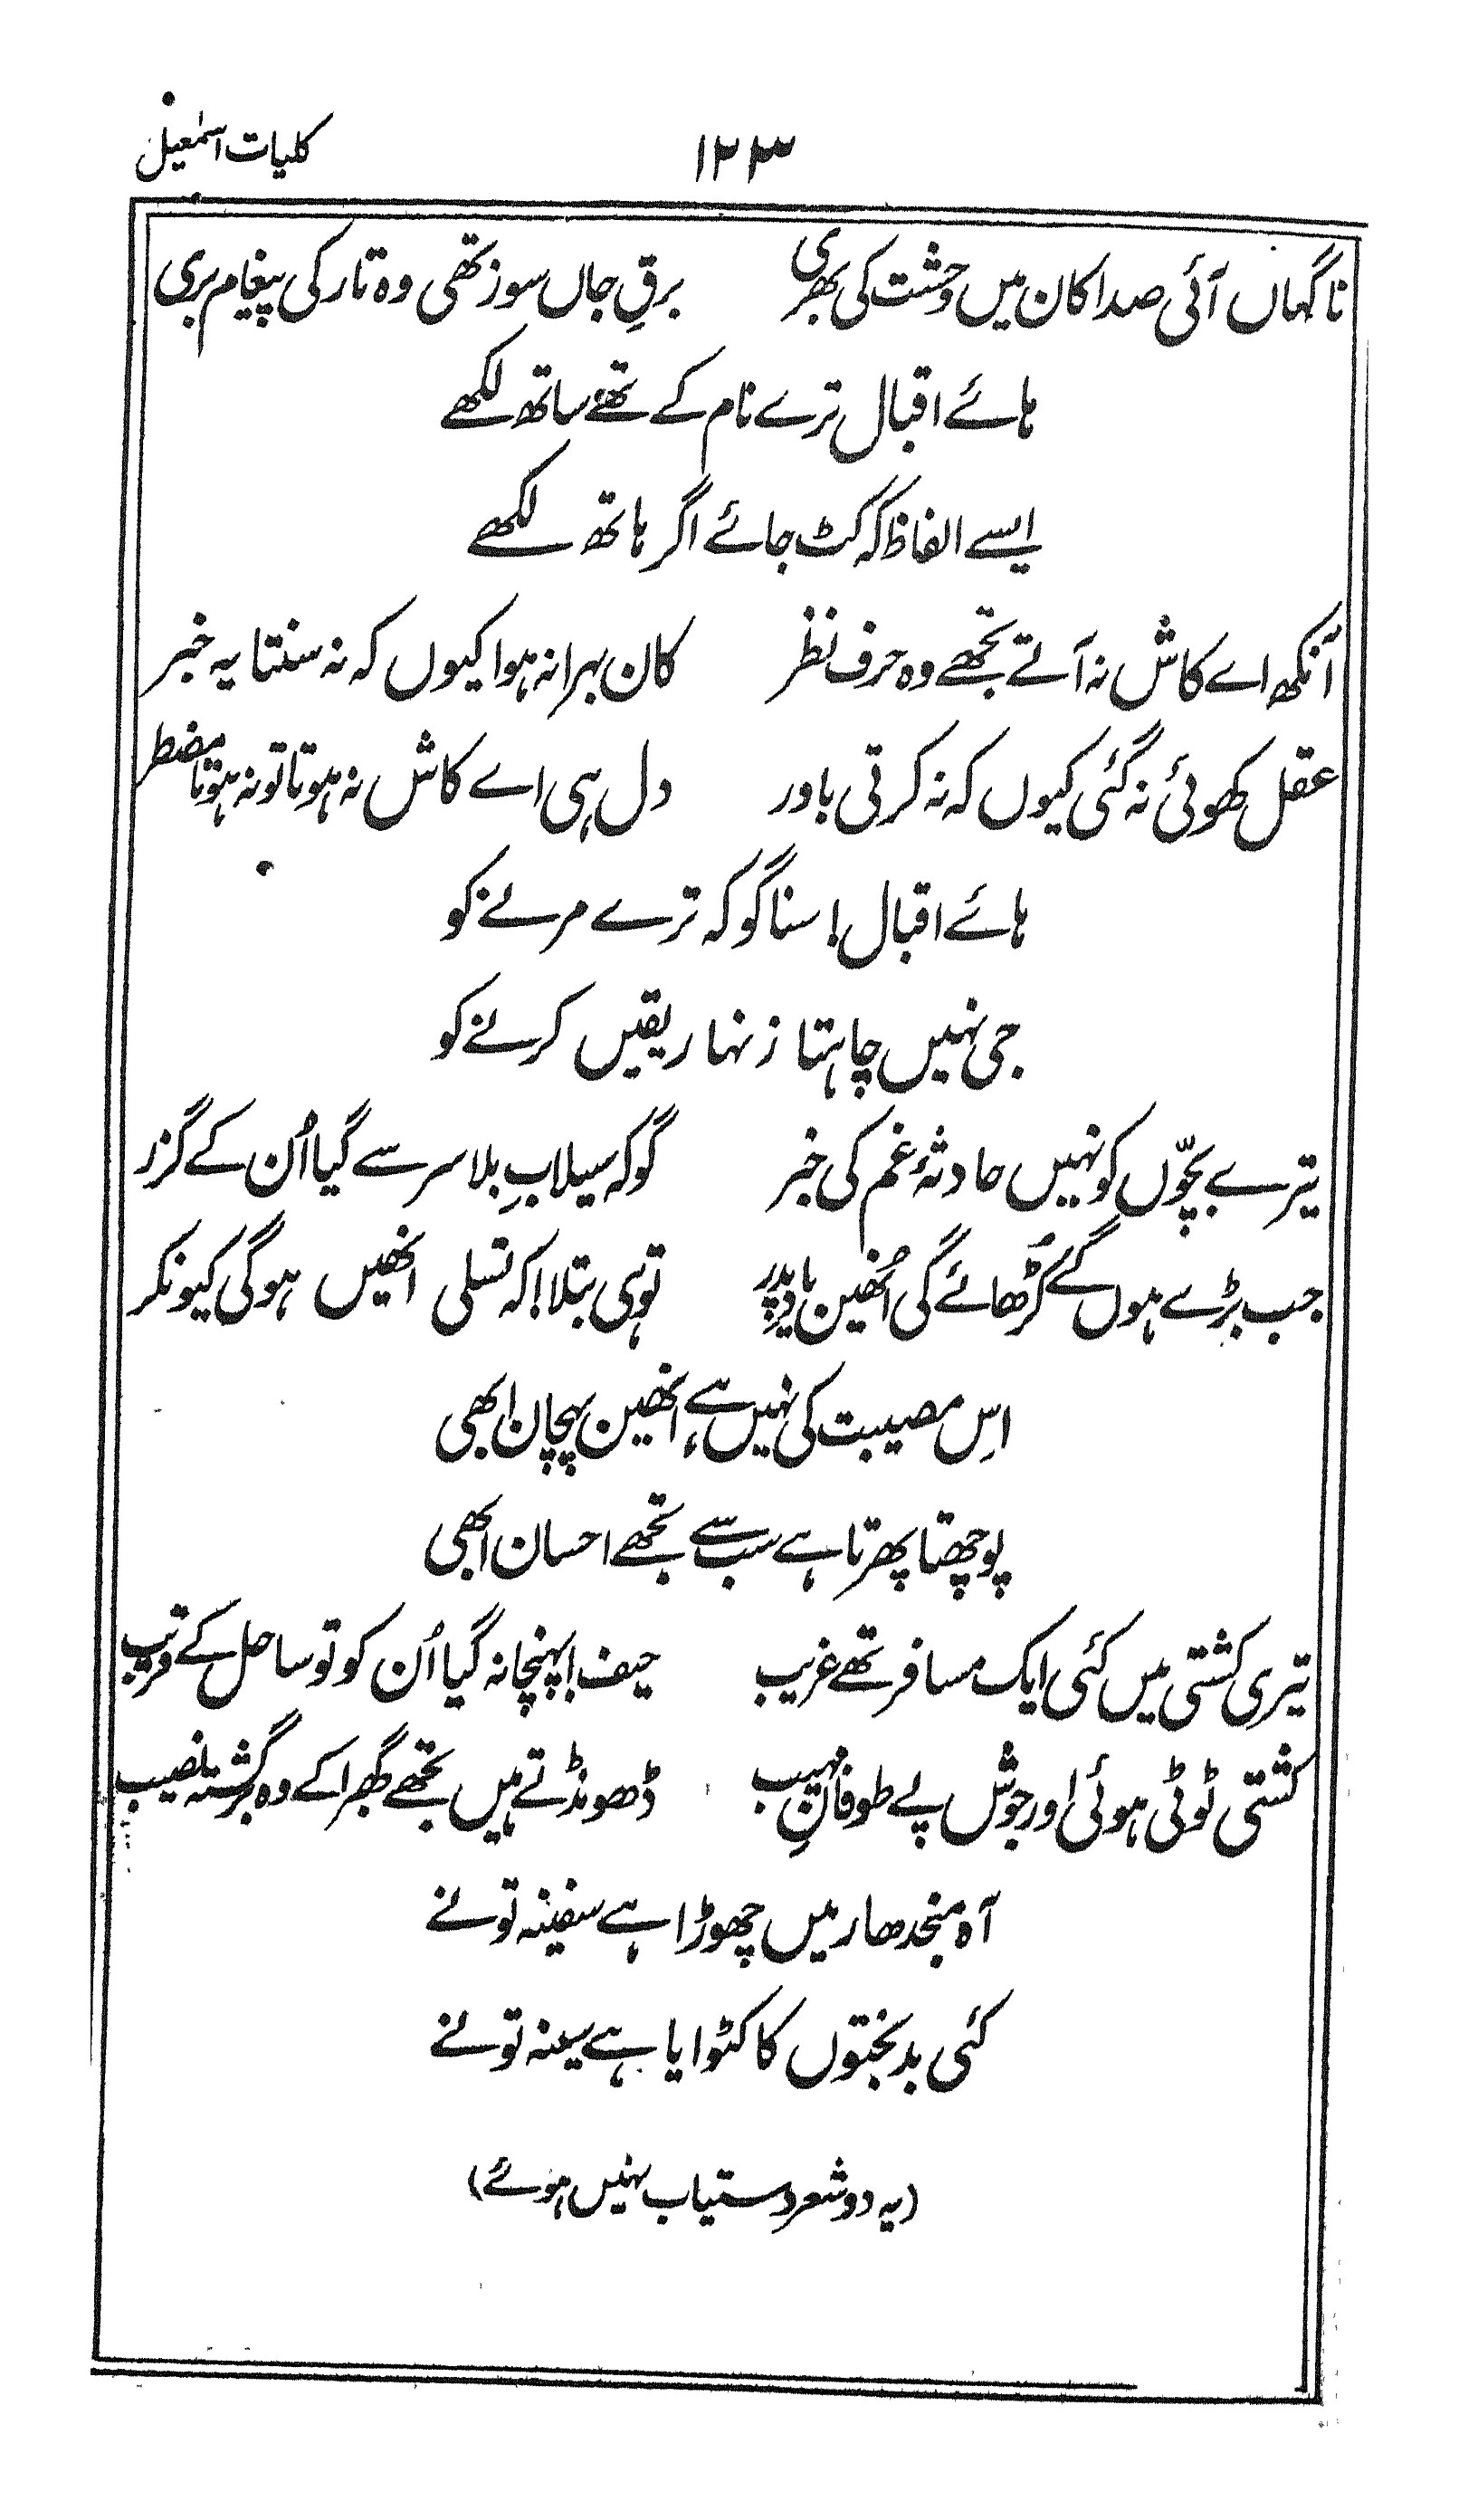 ۱۲۳ کلیات اسمٰعیل
ناگہاں آئی صدا کان میں وحشت کی بھری برقِ جاں سوز تھی وہ تار کی پیغام بری
ہائے اقبال ترے نام کے تھے ساتھ لکھے
ایسے الفاظ کہ کٹ جائے اگر ہاتھ لکھے
آنکھ اے کاش نہ آتے تجھے وہ حرف نظر کان بہرا نہ ہوا کیوں کہ نہ سنتا یہ خبر
عقل کھوئی نہ گئی کیوں کہ نہ کرتی باور دل ہی اے کاش نہ ہوتا تو نہ ہوتا مضطر
ہائے اقبال! سنا گو کہ ترے مرنے کو
جی نہیں چاہتا زنہار یقیں کرنے کو
تیرے بچّوں کو نہیں حادثۂ غم کی خبر گو کہ سیلابِ بلا سر سے گیا اُن کے گزر
جب بڑے ہوں گے کُڑھائے گی اُنھین یادِ پدر تو ہی بتلا! کہ تسلی انھیں ہوگی کیونکر
اِس مصیبت کی نہیں ہے، انھین پہچان ابھی
پوچھتا پھرتا ہے سب سے تجھے احسان ابھی
تیری کشتی میں کئی ایک مسافر تھے غریب حیف! پہنچا نہ گیا اُن کو تو ساحل کے قریب
کشتی ٹوٹی ہوئی اور جوش پے طوفانِ مہیب ڈھونڈتے ہیں تجھے گھبرا کے وہ برگشتہ نصیب
آہ منجدھار میں چھوڑا ہے سفینہ تو نے
کئی بدبختوں کا کٹوایا ہے سینہ تو نے
(یہ دو شعر دستیاب نہیں ہوئے)